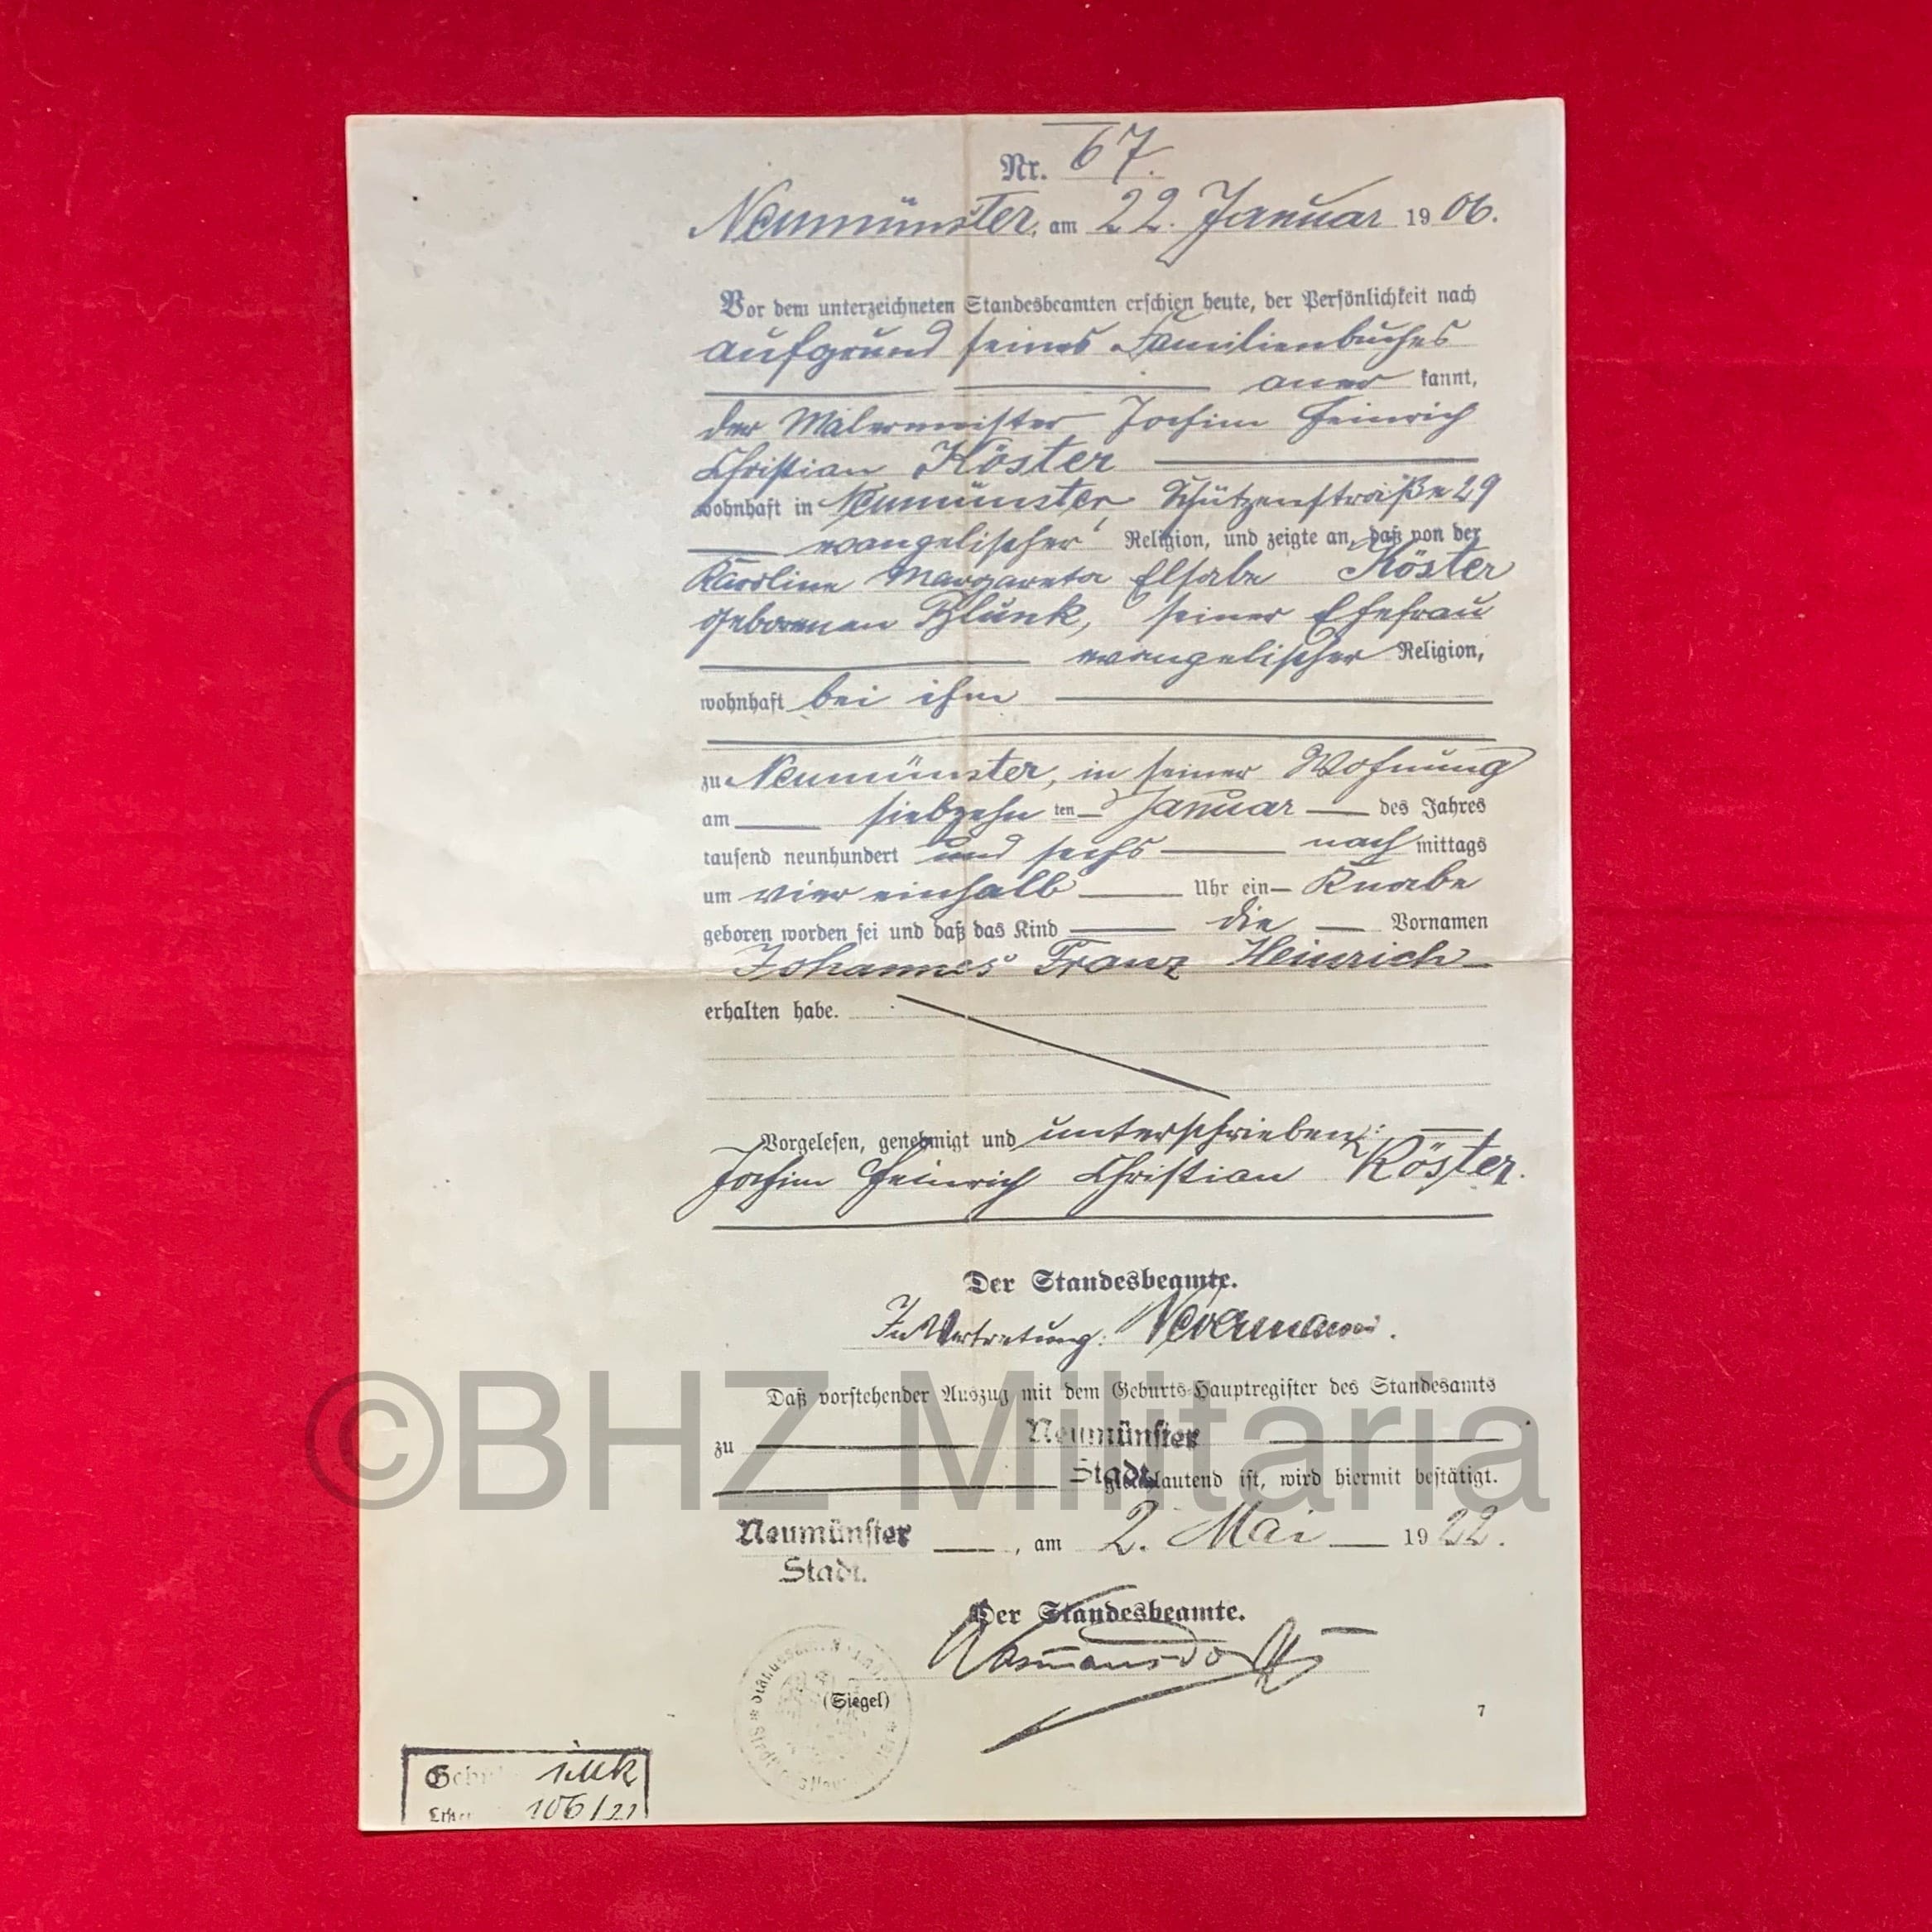 Nr. 67.
Neumünster, am 22. Januar 1906.
Vor dem unterzeichneten Standesbeamten erschien heute, der Persönlichkeit nach
aufgrund seines Familienbuches
aner kannt,
der Malermeister Jochim Heinrich
Christian Köster
wohnhaft in Neumünster, Schützenstraße 29
evangelischer Religion, und zeigte an, daß von der
Karoline Margareta Elsabe Köster
geborenen Blunk, seiner Ehefrau
evangelischer Religion,
wohnhaft bei ihm
zu Neumünster, in seiner Wohnung
am siebzehn ten Januar des Jahres
tausend neunhundert und sechs nach mittags
um vier einhalb Uhr ein Knabe
geboren worden sei und daß das Kind die Vornamen
Johannes Franz Heinrich
erhalten habe.
Vorgelesen, genehmigt und unterschrieben:
Jochim Heinrich Christian Köster.
Der Standesbeamte.
In Vertretung:
Daß vorstehender Auszug mit dem Geburts-Hauptregister des Standesamts
zu Neumünster
Stadt gleichlautend ist, wird hiermit bestätigt.
Neumünster, am 2. Mai 1922.
Stadt.
Der Standesbeamte.
(Siegel)
7
106/22
©BHZ Militaria